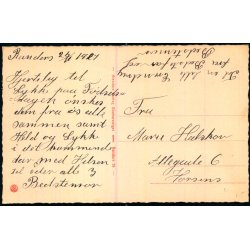 Randers 24/6 1921
Hjertelig til
Lykk paa Födsels
dagen önskes
dem fra os alle
sammen samt
Held og Lykk
i det kommende
Aar med Hilsen
til eder alle 3
Bedstemor
Til en
fra Bedstefar
Bedstemor
Fru
Marie Halskov
Allegade 6
Horsens